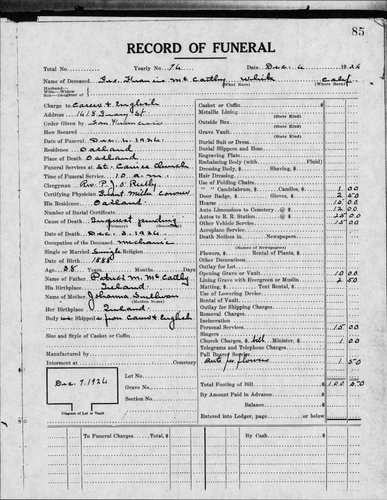 85
RECORD OF FUNERAL
Total No. Yearly No. 76 Date Dec. 6 1926
Name of Deceased Francis Mc Carthy White Calif
Husband— Wife—Widow Son—Daughter of (What Race) (Where Born)
Charge to Carew & English
Address 1618 Geary St
Order Given by San Francisco
How Secured
Date of Funeral Dec. 6, 1926.
Residence Oakland
Place of Death Oakland
Funeral Services at Church
Time of Funeral Service 10 a.m.
Clergyman Rev. P. J.
Certifying Physician Coroner
His Residence Oakland.
Number of Burial Certificate
Cause of Death Inquest pending
(Primary) (Secondary)
Date of Death Dec. 3, 1926
Occupation of the Deceased mechanic
Single or Married Single Religion
Date of Birth 1888
Age 38 Years Months Days
Name of Father Patrick M. Mc Carthy
His Birthplace Ireland.
Name of Mother Johanna Sullivan
(Maiden Name)
Her Birthplace Ireland
Body Shipped from Carew & English
Size and Style of Casket or Coffin
Manufactured by
Interment at Cemetery
Lot No.
Grave No.
Section No.
Dec 7, 1926
Diagram of Lot or Vault
Casket or Coffin $
Metallic Lining
(State Kind)
Outside Box
(State Kind)
Grave Vault
(State Kind)
Burial Suit or Dress
Burial Slippers and Hose
Engraving Plate
Embalming Body (with Fluid)
Dressing Body, $ Shaving, $
Hair Dressing
Use of Folding Chairs
" " Candelabrum, $ Candles, $ 1 00
Door Badge, $ Gloves, $ 2 50
Hearse 15 00
Auto Limousines to Cemetery @ $ 12 00
Autos to R. R. Station @ $ 25 00
Other Vehicle Service 15 00
Aeroplane Service
Death Notices in Newspapers
(Names of Newspapers)
Flowers, $ Rental of Plants, $
Other Decorations
Outlay for Lot
Opening Grave or Vault 10 00
Lining Grave with Evergreen or Muslin 2 50
Matting, $ Tent Rental, $
Use of Lowering Device
Rental of Vault
Outlay for Shipping Charges
Removal Charges
Incineration
Personal Services 15 00
Singers
Church Charges, $ Minister, $ 1 00
Telegrams and Telephone Charges
Pall Bearer Service
Auto for flowers 1 50
Total Footing of Bill $ 100 50
By Amount Paid in Advance
Balance
Entered into Ledger, page or below.
To Funeral Charges Total, $ By Cash $